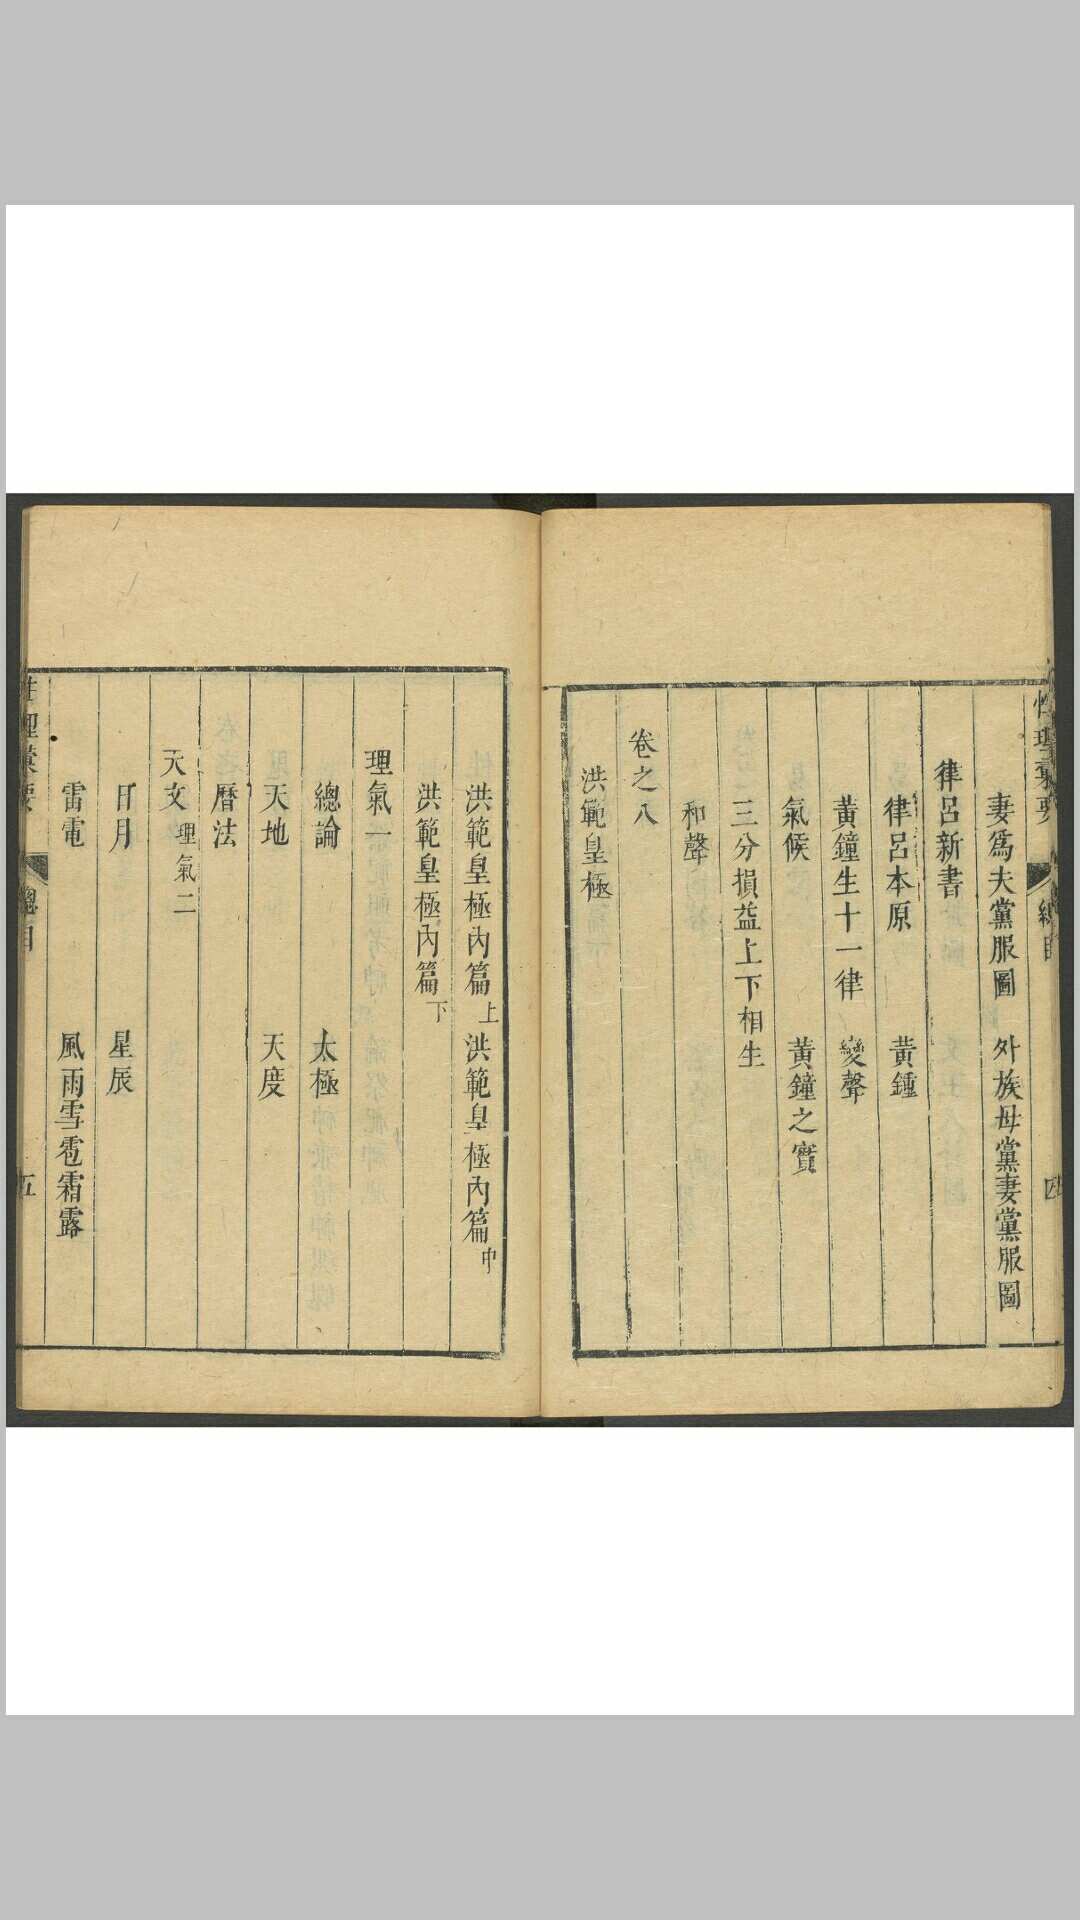 性理彙要 總目 四
妻爲夫黨服圖 外族母黨妻黨服圖
律呂新書
律呂本原 黃鍾
黃鐘生十一律 變聲
氣候 黃鐘之實
三分損益上下相生
和聲
卷之八
洪範皇極
洪範皇極內篇上 洪範皇極內篇中
洪範皇極內篇下
理氣一
總論 太極
天地 天度
曆法
天文理氣二
日月 星辰
雷電 風雨雪雹霜露
性理彙要 總目 五